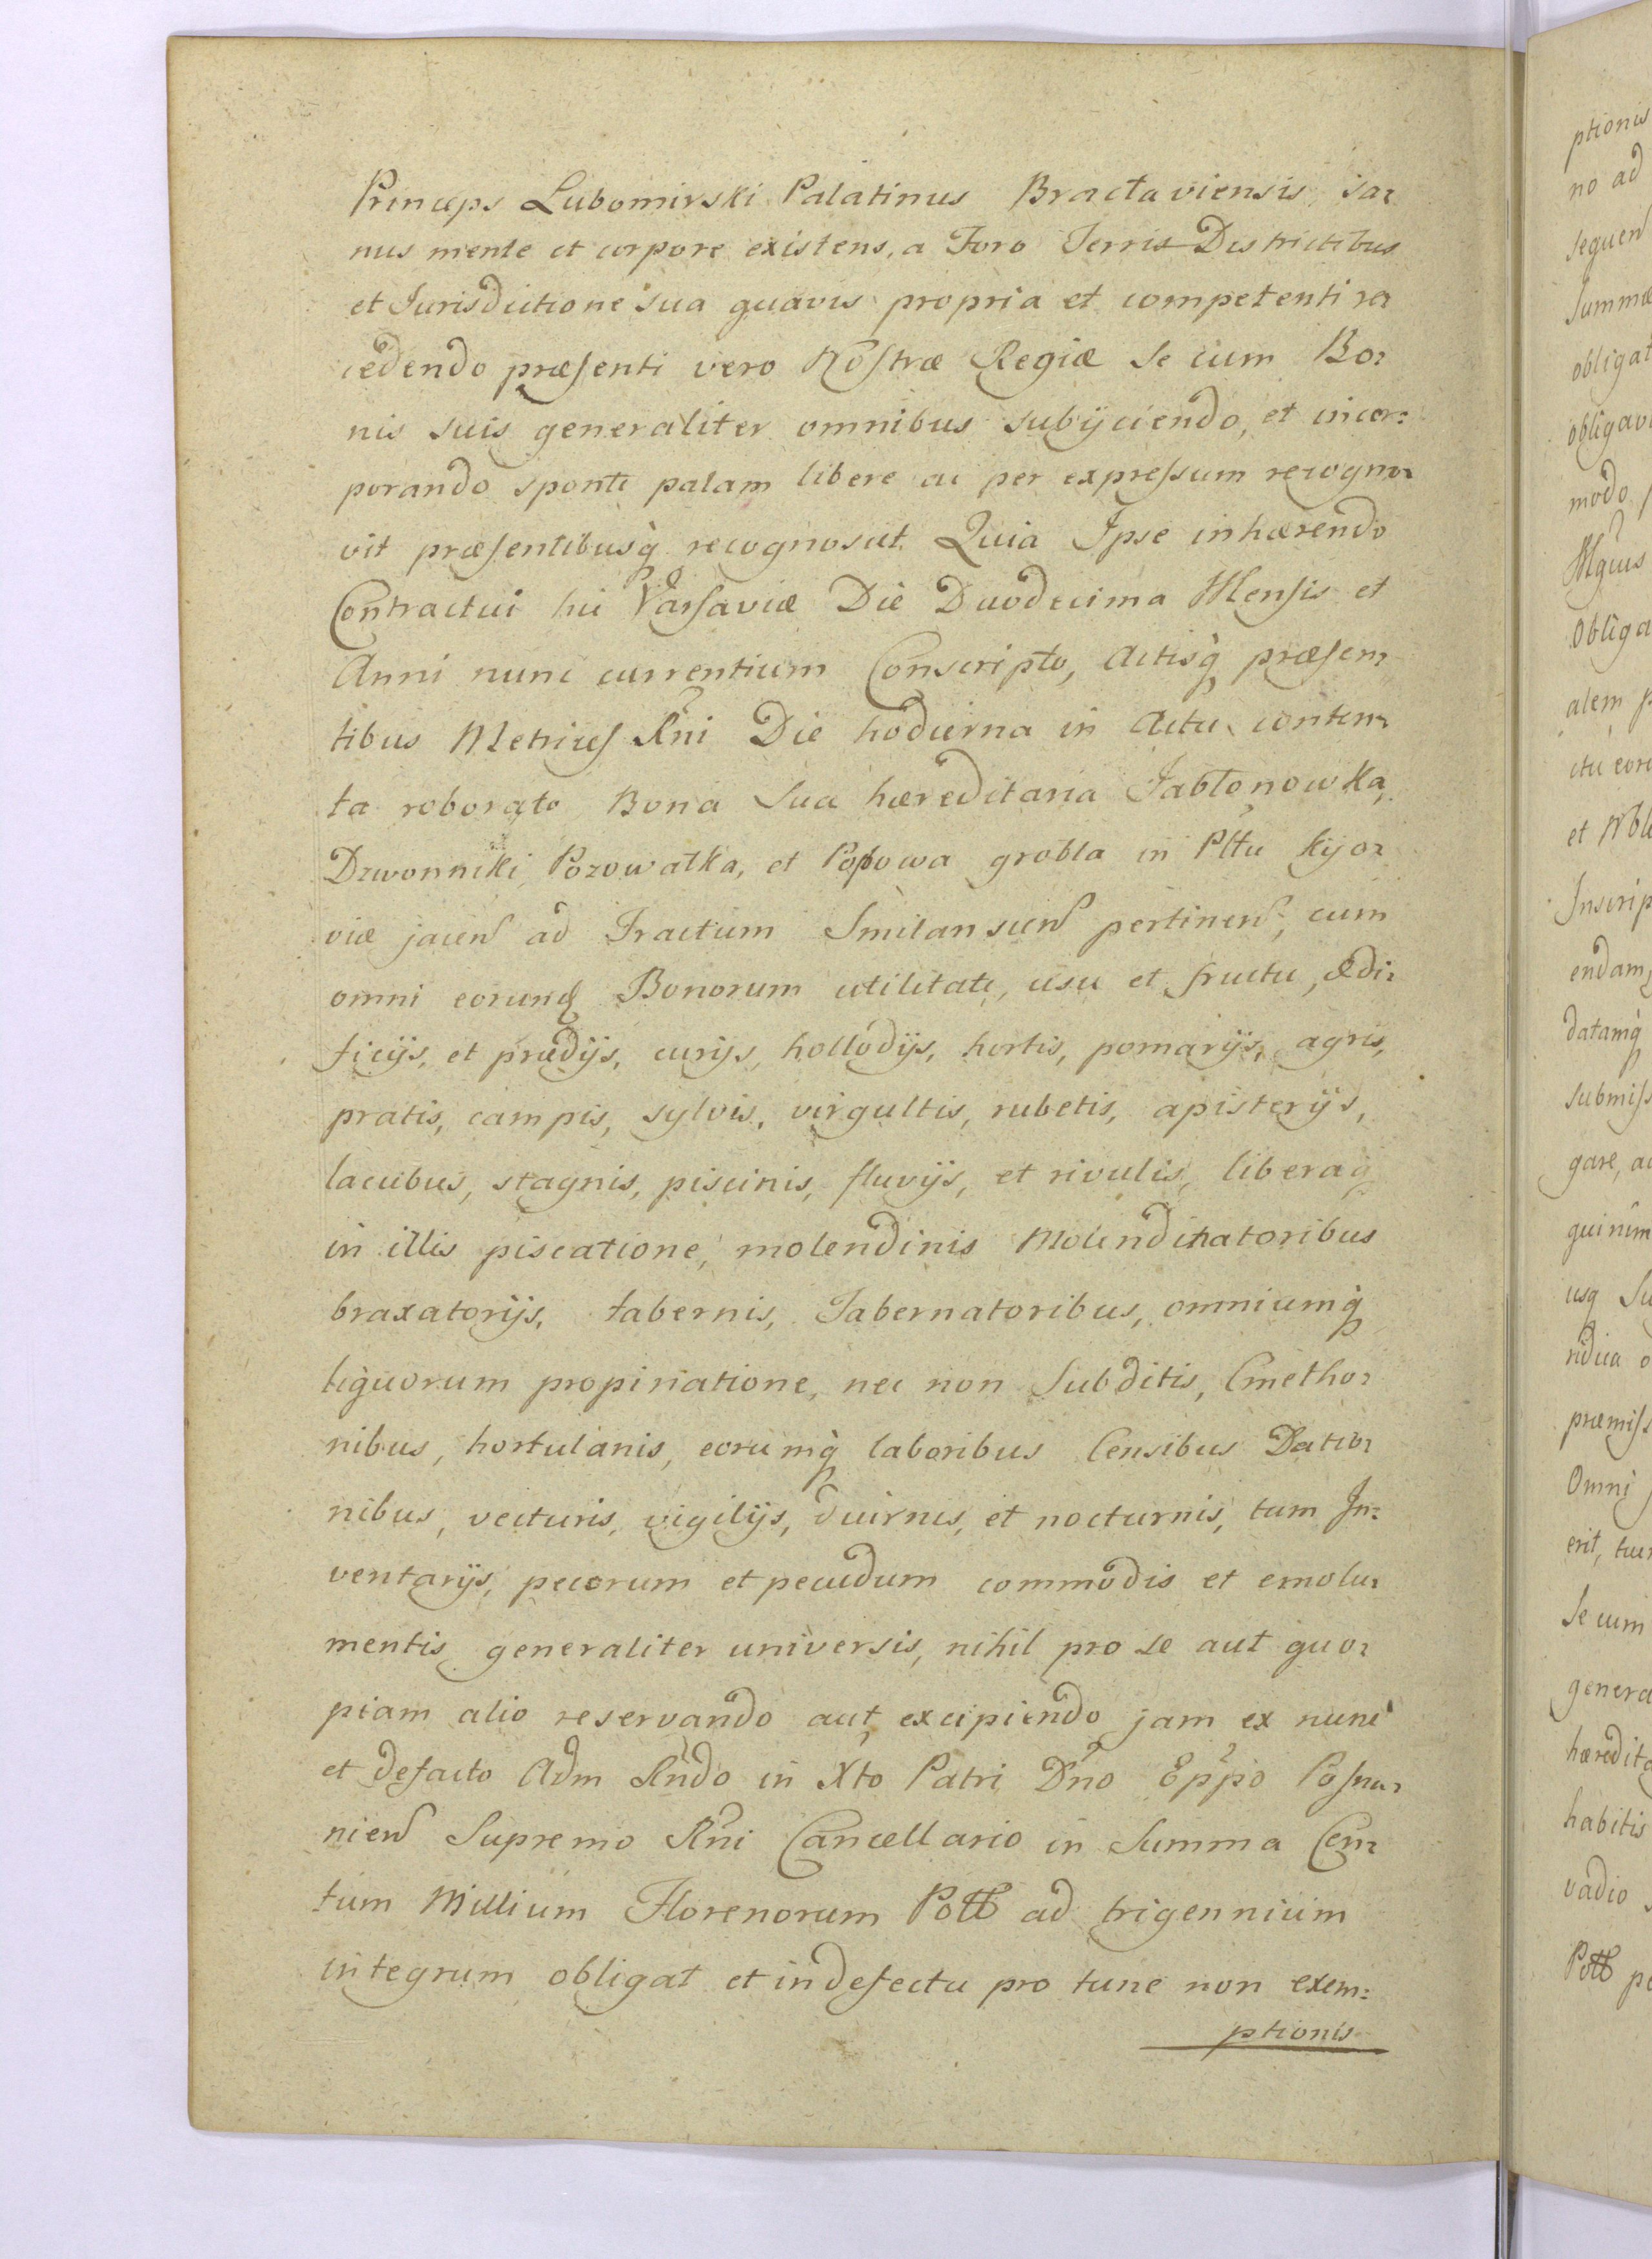 Princeps Lubomirski Palatinus Bractaviensis, sa=
nus mente et corpore existens, a Foro Terris Districtibus
et Jurisdictione sua quavis propria et competenti re
cedendo præsenti vero Nostræ Regiæ se cum Bo=
nis suis generaliter omnibus subijciendo, et incor=
porando sponte palam libere ac per expressum recogno=
vit præsentibusq recognoscit. Quia Ipse inhærendo
Contractui hic Varsaviæ Die Duodecima Mensis et
Anni nunc currentium Conscripto, Actisq præsen=
tibus Metrices Rni Die hodierna in Actu conten=
ta roborato Bona sua hæreditaria Jabłonowka,
Dzwonniki Pozowatka, et Popowa grobla in Plttu Kijo=
viæ jacen ad Tractum Smilanscen pertinen, cum
omni eorund Bonorum utilitate, usu et fructu, ædi=
ficijs, et prædijs, curijs, hollodijs, hortis, pomarijs, agris,
pratis, campis, sylvis, virgultis, rubetis, apisterijs,
lacubus, stagnis, piscinis, fluvijs, et rivulis, liberaq
in illis piscatione, molendinis Molendinatoribus
braxatorijs, tabernis, Tabernatoribus, omniumq
liquorum propinatione, nec non Subditis, Cmetho=
nibus, hortulanis, eorumq laboribus Censibus Datio=
nibus, vecturis, vigilijs, diurnis, et nocturnis, tum In=
ventarijs, pecorum et pecudum commodis et emolu=
mentis generaliter universis, nihil pro se aut quo=
piam alio reservando aut excipiendo jam ex nunc
et defacto Adm Rndo in Xto Patri Dno Eppo Posna=
nien Supremo Rni Cancellario in Summa Cen=
tum Millium Florenorum Poll ad trigennium
integrum obligat et indefectu pro tunc non exem=
ptionis
ptionis
no ad
sequen
Summæ
obligat
obligavi
modo
Mgcus
Obliga
alem
et Nbl
Inscrip
endam,
datamq
submiss
gare, ac
usq Su
præmiss
Omni
erit, tum
se cum
genera
hæredita
habitis
vadio
Poll